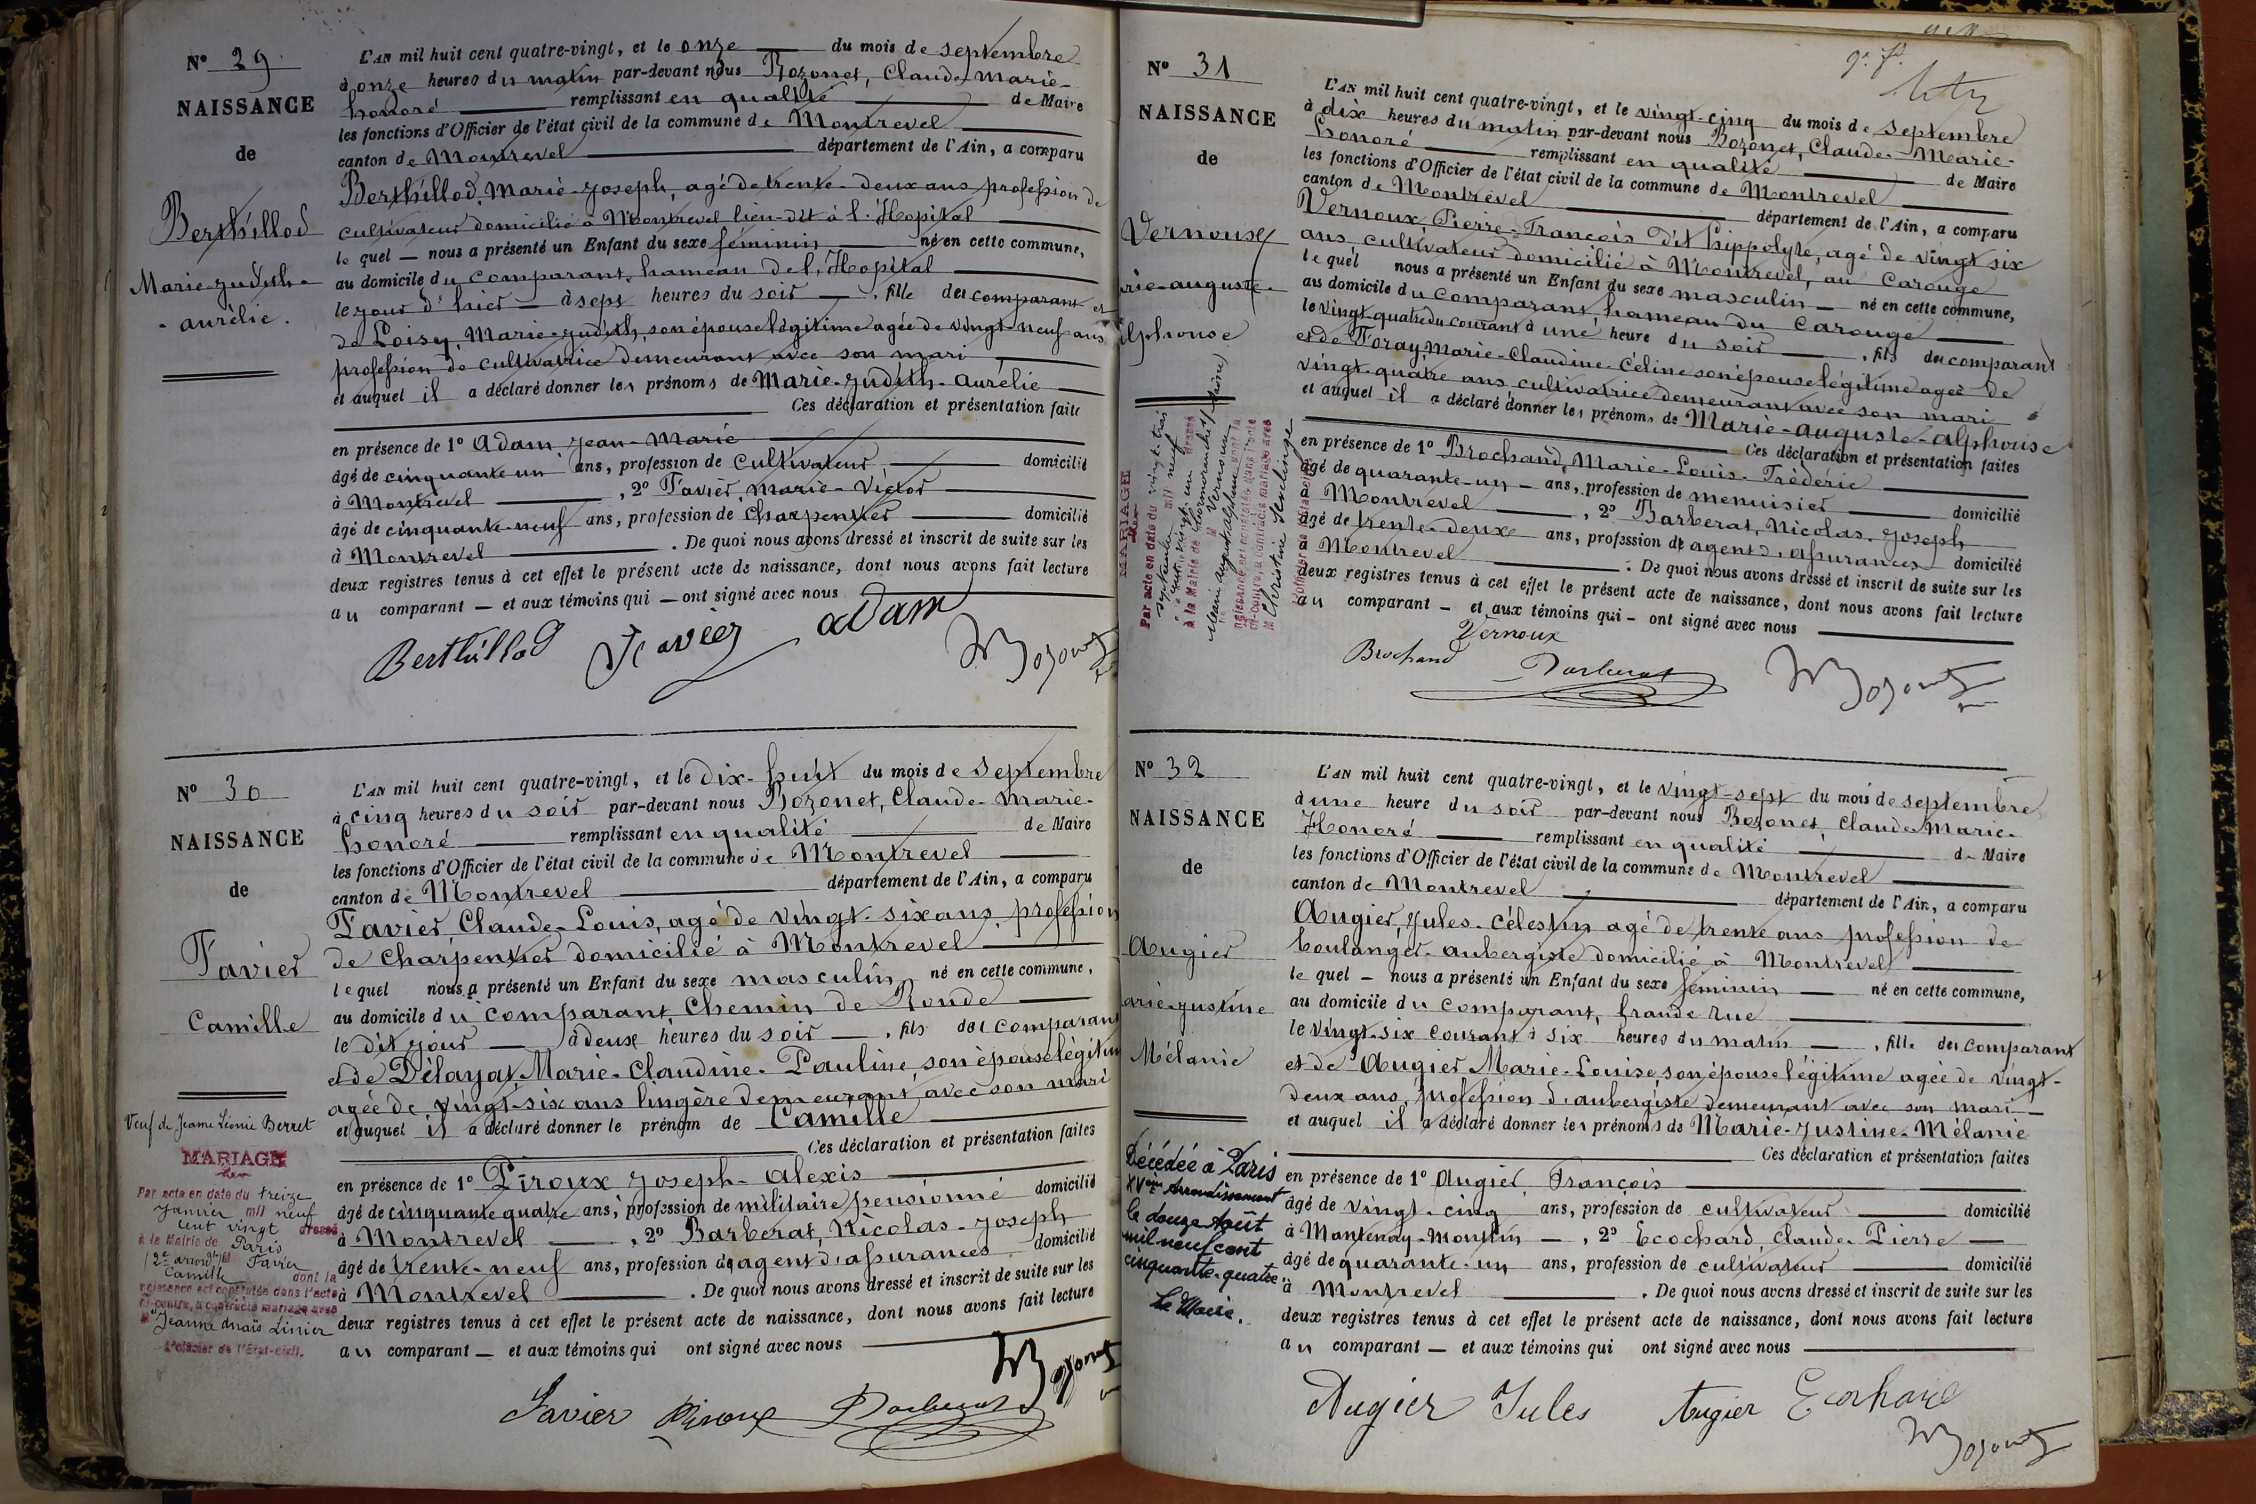 N° 29
NAISSANCE
de
Berthillod
Marie-Judith-
-aurélie.
L'AN mil huit cent quatre-vingt, et le onze du mois de septembre
à onze heures du matin par-devant nous Bozonet, Claude-Marie-
honoré remplissant en qualité de Maire
les fonctions d'Officier de l'état civil de la commune de Montrevel
canton de Montrevel département de l'Ain, a comparu
Berthillod, Marie-Joseph, agé de trente-deux ans profession de
cultivateur domicilié à Montrevel lieu-dit à l'Hopital
le quel — nous a présenté un Enfant du sexe féminin né en cette commune,
au domicile du comparant, hameau de l'Hopital
le jour d'hier à sept heures du soir, fille de comparant et
de Loisy, Marie-Judith, son épouse légitime agée de vingt-neuf ans
profession de cultivatrice demeurant avec son mari
et auquel il a déclaré donner les prénoms de Marie-Judith-aurélie
Ces déclaration et présentation faite
en présence de 1° Adam, Jean-Marie
âgé de cinquante un ans, profession de cultivateur, domicilié
à Montrevel, 2° Favier, Marie-Victor
âgé de cinquante-neuf ans, profession de charpentier domicilié
à Montrevel. De quoi nous avons dressé et inscrit de suite sur les
deux registres tenus à cet effet le présent acte de naissance, dont nous avons fait lecture
au comparant — et aux témoins qui — ont signé avec nous
Berthillod Favier Adam Bozonet
N° 30
NAISSANCE
de
Favier
Camille
L'AN mil huit cent quatre-vingt, et le dix-huit du mois de septembre
à cinq heures du soir par-devant nous Bozonet, Claude-Marie-
honoré remplissant en qualité de Maire
les fonctions d'Officier de l'état civil de la commune de Montrevel
canton de Montrevel département de l'Ain, a comparu
Favier Claude-Louis, agé de vingt-six ans, profession
de charpentier domicilié à Montrevel
le quel nous a présenté un Enfant du sexe masculin né en cette commune,
au domicile du comparant, Chemin de Ronde
le dit jour à deux heures du soir, fils de comparant
et de Délayat Marie-Claudine-Pauline, son épouse légitime
agée de vingt-six ans lingère demeurant avec son mari
et auquel il a déclaré donner le prénom de Camille
Ces déclaration et présentation faites
en présence de 1° Piroux Joseph-Alexis
âgé de cinquante quatre ans, profession de militaire pensionné domicilié
à Montrevel, 2° Barberat, Nicolas-Joseph
âgé de trente-neuf ans, profession de agent d'assurances domicilié
à Montrevel. De quoi nous avons dressé et inscrit de suite sur les
deux registres tenus à cet effet le présent acte de naissance, dont nous avons fait lecture
au comparant — et aux témoins qui ont signé avec nous
Favier Piroux Barberat Bozonet
Veuf de Jeanne Léonie Berret
MARIAGE
Par acte en date du treize
janvier mil neuf
cent vingt dressé
à la Mairie de Paris
12e arrondt Favier
Camille dont la
naissance est constatée dans l'acte
ci-contre, a contracté mariage avec
Jeanne Anaïs Linier
L'Officier de l'État-civil.
N° 31
NAISSANCE
de
Vernoux
rie-auguste-
alphonse
L'AN mil huit cent quatre-vingt, et le vingt-cinq du mois de septembre
à dix heures du matin par-devant nous Bozonet, Claude-Marie-
honoré remplissant en qualité de Maire
les fonctions d'Officier de l'état civil de la commune de Montrevel
canton de Montrevel département de l'Ain, a comparu
Vernoux, Pierre-François dit hippolyte, agé de vingt six
ans, cultivateur domicilié à Montrevel, au Carouge
le quel nous a présenté un Enfant du sexe masculin né en cette commune,
au domicile du comparant, hameau du Carouge
le vingt-quatre du courant à une heure du soir, fils de comparant
et de Foray, Marie-Claudine-Céline son épouse légitime agée de
vingt-quatre ans cultivatrice demeurant avec son mari
et auquel il a déclaré donner les prénoms de Marie-auguste-alphonse
Ces déclaration et présentation faites
en présence de 1° Brochand, Marie-Louis-Frédéric
âgé de quarante-un ans, profession de menuisier domicilié
à Montrevel, 2° Barberat, Nicolas-Joseph
âgé de trente-deux ans, profession de agent d'assurances domicilié
à Montrevel. De quoi nous avons dressé et inscrit de suite sur les
deux registres tenus à cet effet le présent acte de naissance, dont nous avons fait lecture
au comparant — et aux témoins qui — ont signé avec nous
Vernoux
Brochand Barberat Bozonet
MARIAGE
Par acte en date du vingt-trois
septembre mil neuf
cent vingt-un dressé
à la Mairie de
Vernoux
Marie auguste alphonse dont la
naissance est constatée dans l'acte
ci-contre, a contracté mariage avec
Christine
N° 32
NAISSANCE
de
Augier
arie-Justine
Mélanie
L'AN mil huit cent quatre-vingt, et le vingt-sept du mois de septembre
à une heure du soir par-devant nous Bozonet, Claude-Marie-
Honoré remplissant en qualité de Maire
les fonctions d'Officier de l'état civil de la commune de Montrevel
canton de Montrevel département de l'Ain, a comparu
Augier, Jules-Célestin agé de trente ans profession de
boulanger-aubergiste domicilié à Montrevel
le quel — nous a présenté un Enfant du sexe féminin né en cette commune,
au domicile du comparant, Grande Rue
le vingt-six courant à six heures du matin, fille de comparant
et de Augier Marie-Louise, son épouse légitime agée de vingt-
deux ans, profession d'aubergiste demeurant avec son mari
et auquel il a déclaré donner les prénoms de Marie-Justine-Mélanie
Ces déclaration et présentation faites
en présence de 1° Augier, François
âgé de vingt-cinq ans, profession de cultivateur domicilié
à Mantenay-Montlin, 2° Ecochard, Claude-Pierre
âgé de quarante-un ans, profession de cultivateur domicilié
à Montrevel. De quoi nous avons dressé et inscrit de suite sur les
deux registres tenus à cet effet le présent acte de naissance, dont nous avons fait lecture
au comparant — et aux témoins qui ont signé avec nous
Augier Jules Augier Ecochard
Bozonet
Décédée à Paris
XVème Arrondissement
le douze Août
mil neuf cent
cinquante-quatre.
Le Maire.